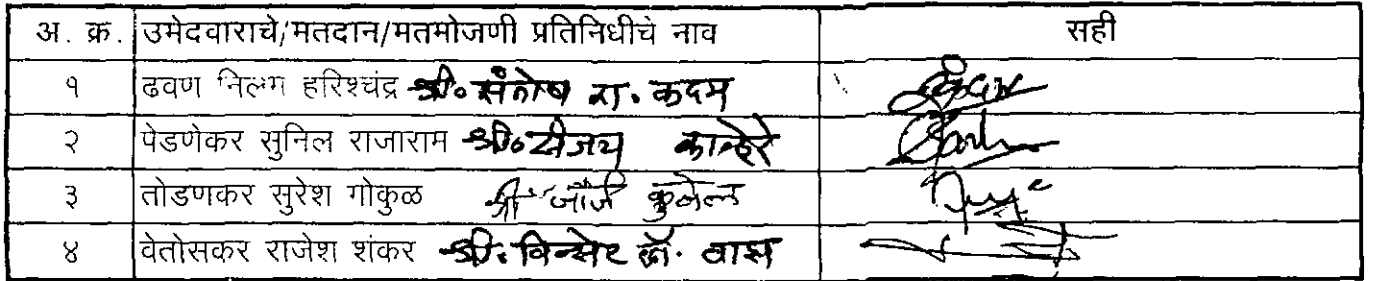 अ. क्र. उमेदवाराचे/मतदान/मतमोजणी प्रतिनिधीचे नाव सही
१ ढवण निलम हरिश्चंद्र श्री. संतोष रा. कदम
२ पेडणेकर सुनिल राजाराम श्री. कान्हेरे
३ तोडणकर सुरेश गोकुळ श्री जॉर्ज
४ वेतोसकर राजेश शंकर श्री. विन्सेट वास